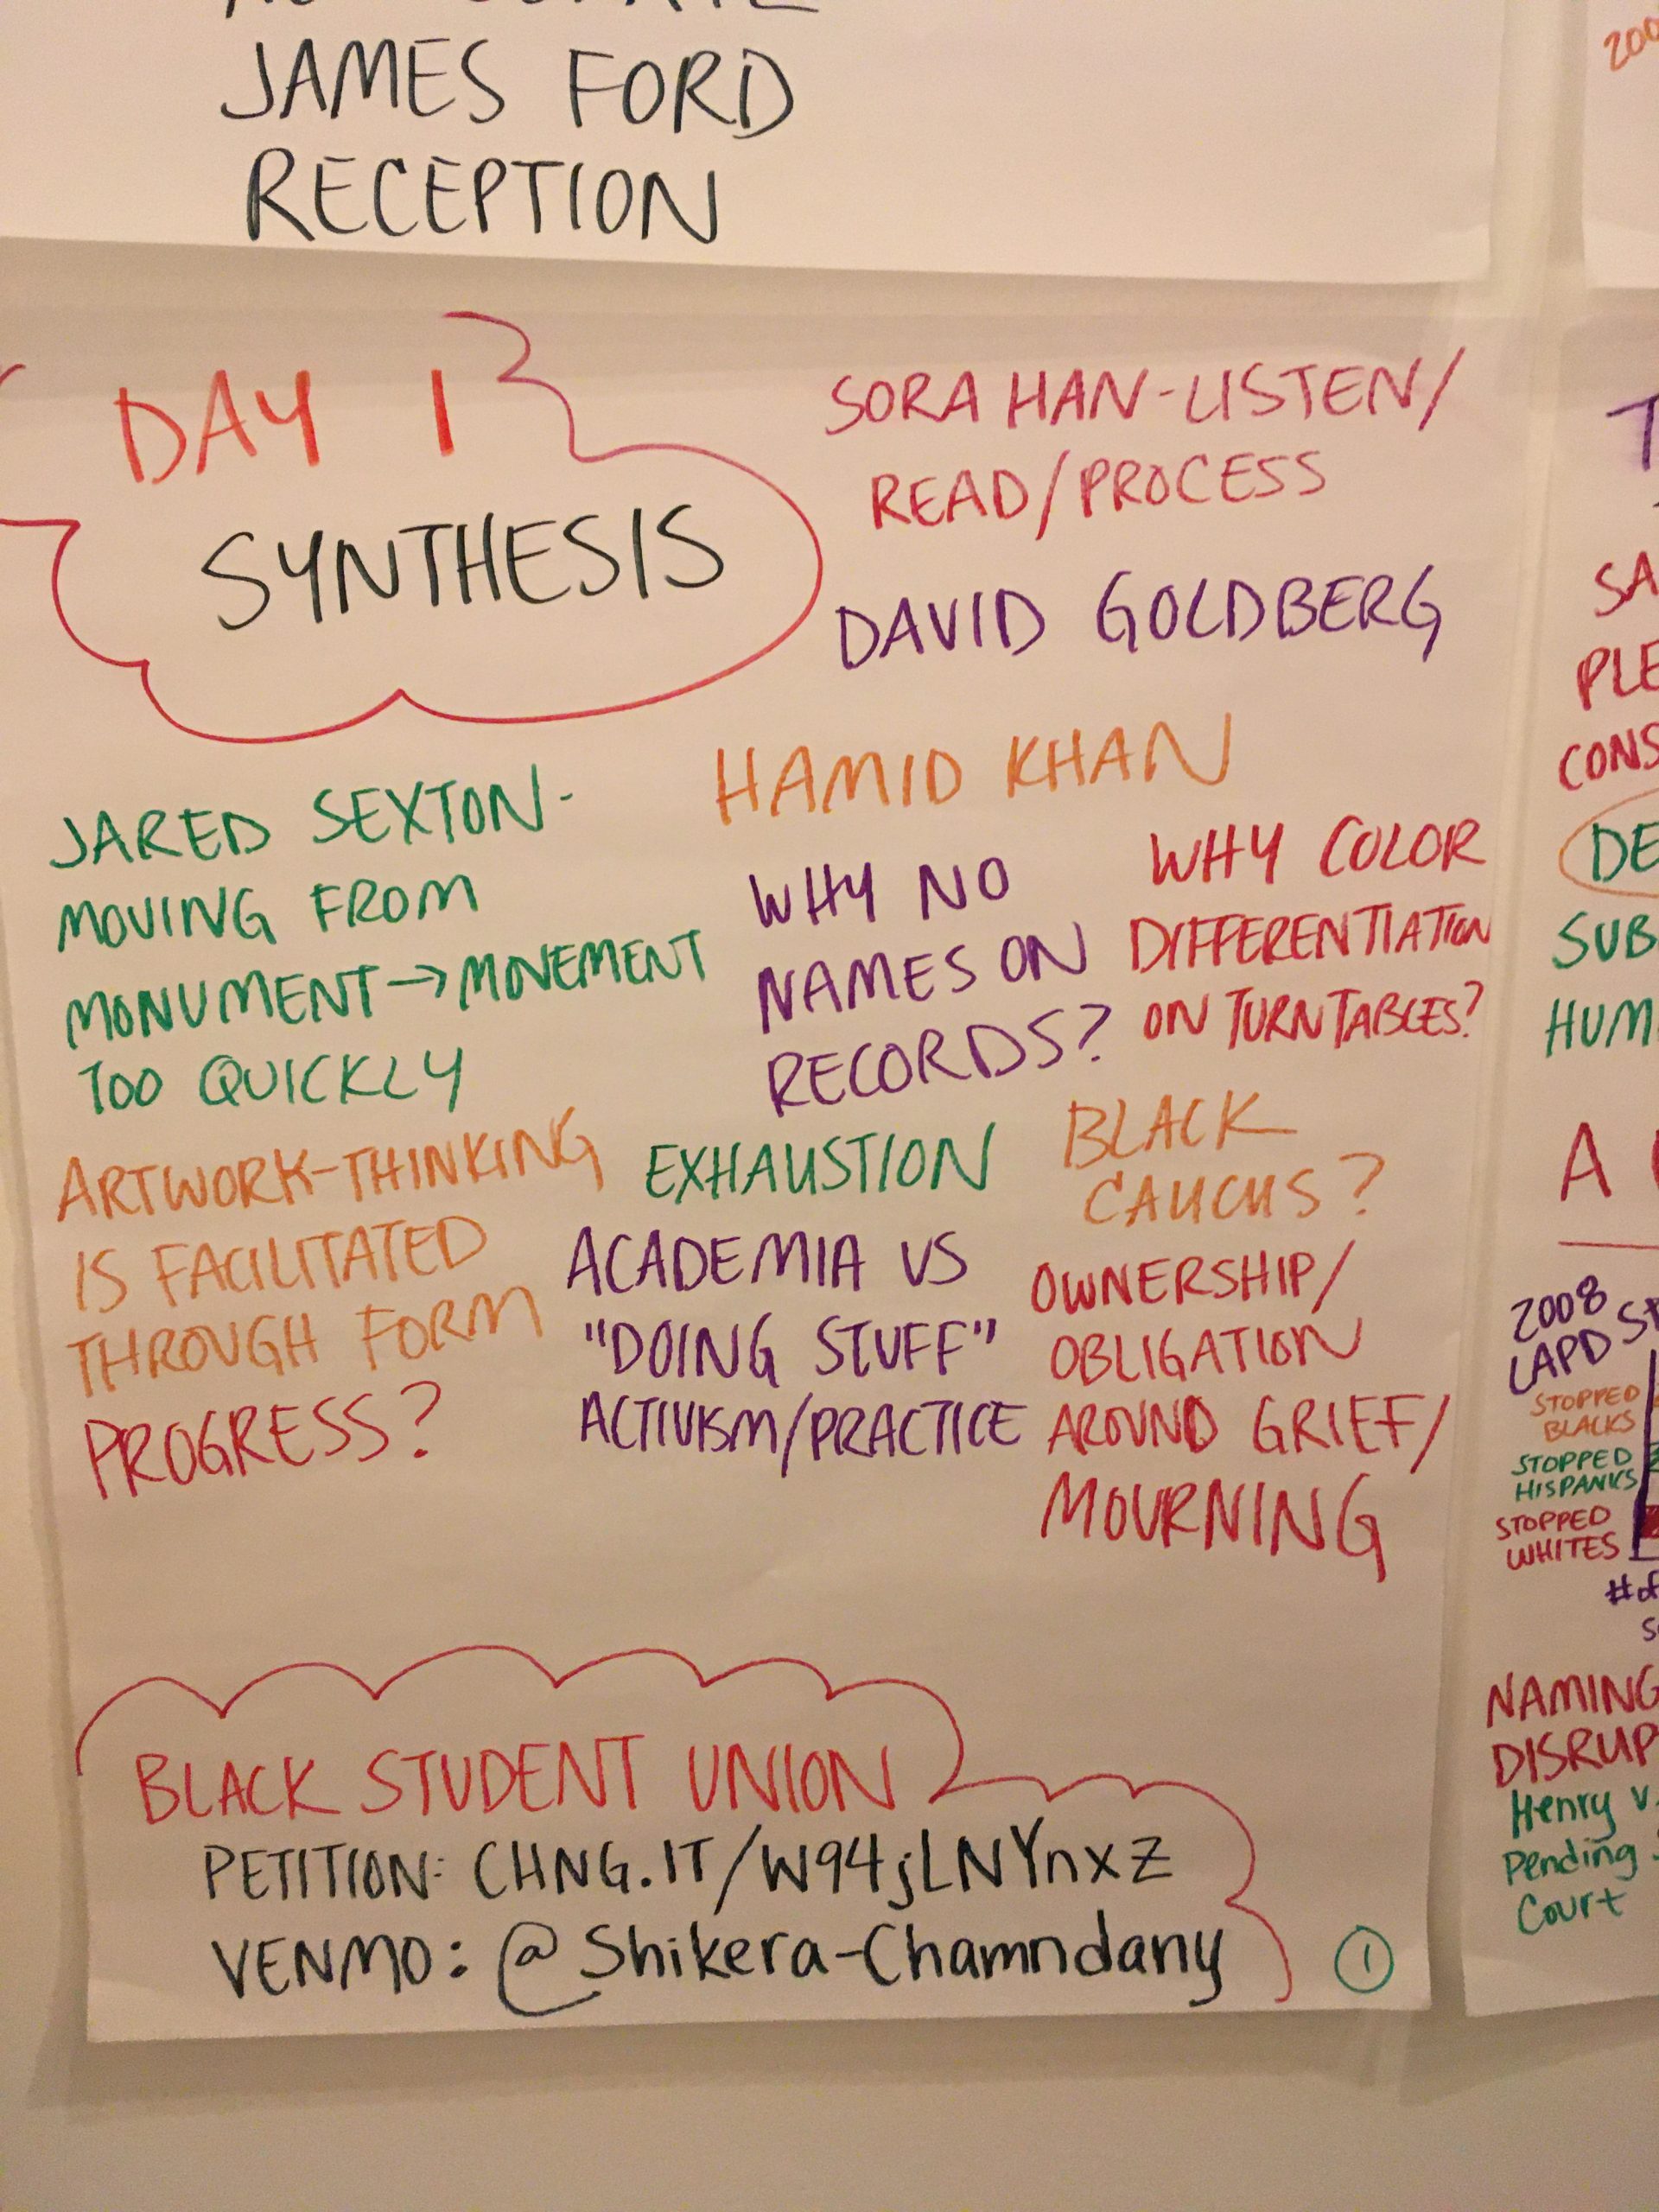 JAMES FORD
RECEPTION
DAY 1
SYNTHESIS
SORA HAN-LISTEN/
READ/PROCESS
DAVID GOLDBERG
HAMID KHAN
JARED SEXTON-
MOVING FROM
MONUMENT→MOVEMENT
TOO QUICKLY
WHY NO
NAMES ON
RECORDS?
WHY COLOR
DIFFERENTIATION
ON TURNTABLES?
ARTWORK-THINKING
IS FACILITATED
THROUGH FORM
PROGRESS?
EXHAUSTION
BLACK
CAUCUS?
ACADEMIA VS
"DOING STUFF"
ACTIVISM/PRACTICE
OWNERSHIP/
OBLIGATION
AROUND GRIEF/
MOURNING
BLACK STUDENT UNION
PETITION: CHNG.IT/W94jLNYnxZ
VENMO: @Shikera-Chamndany
1
200
SA
PLE
CONS
DE
SUB
HUM
A
2008
LAPD ST
STOPPED
BLACKS
STOPPED
HISPANICS
STOPPED
WHITES
#of
NAMING
DISRUP
Henry v.
Pending
Court